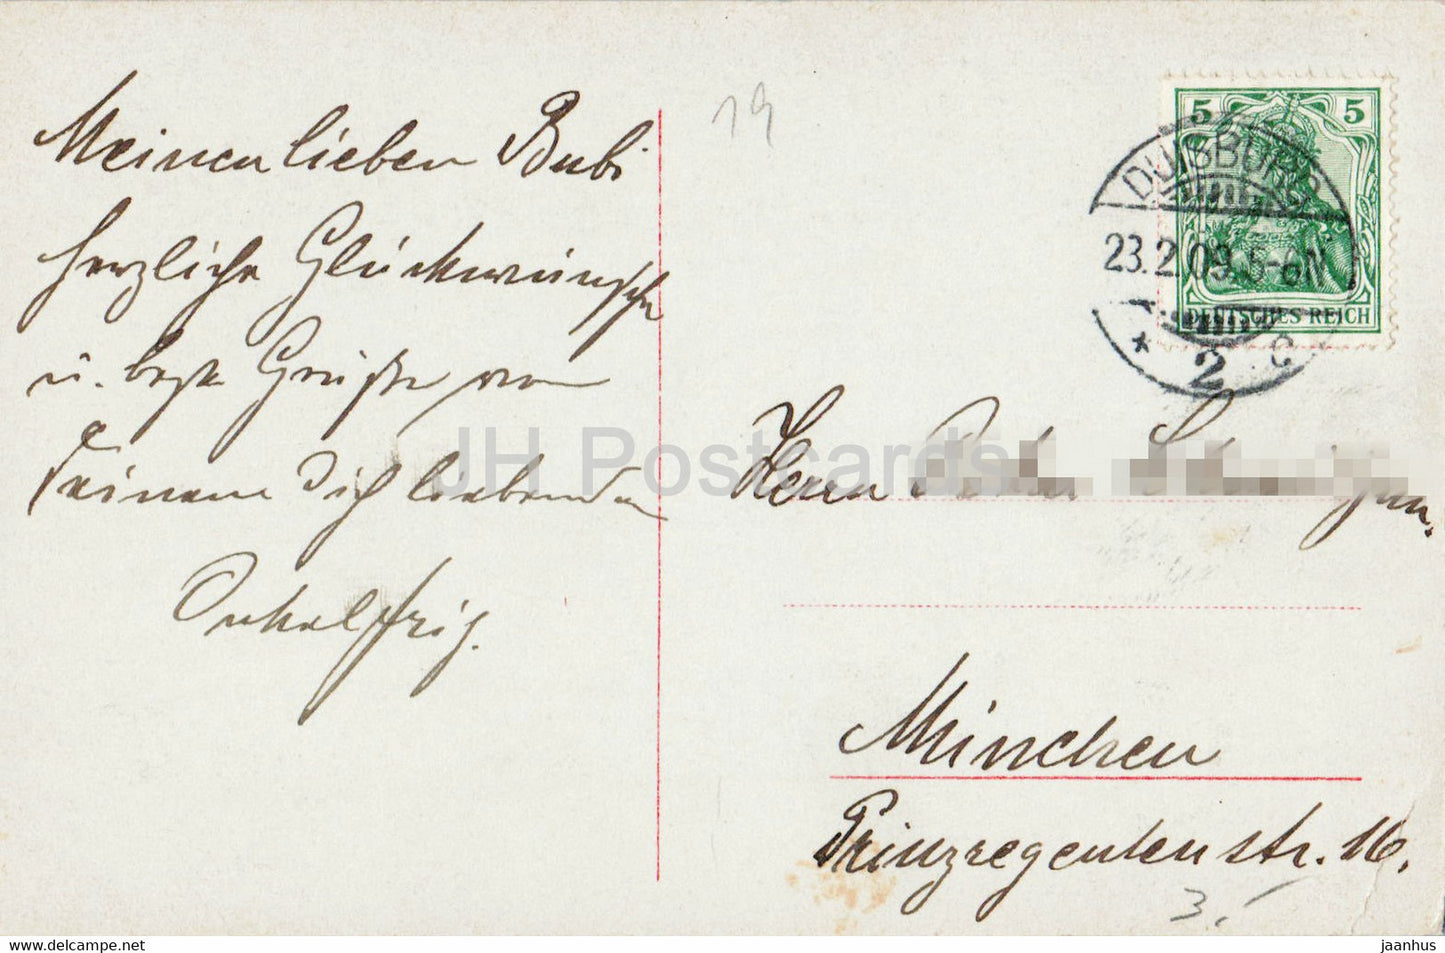 Meinen lieben Bubi
herzliche Glückwünsche
u. beste Grüße von
Deinem Dich liebenden
Onkel Fritz.
19
5 5
DUISBURG
23.2.09.5-6N
DEUTSCHES REICH
* 2 c
Herrn
München
Prinzregentenstr. 16.
3.
JH Postcards
www.delcampe.net
jaanhus